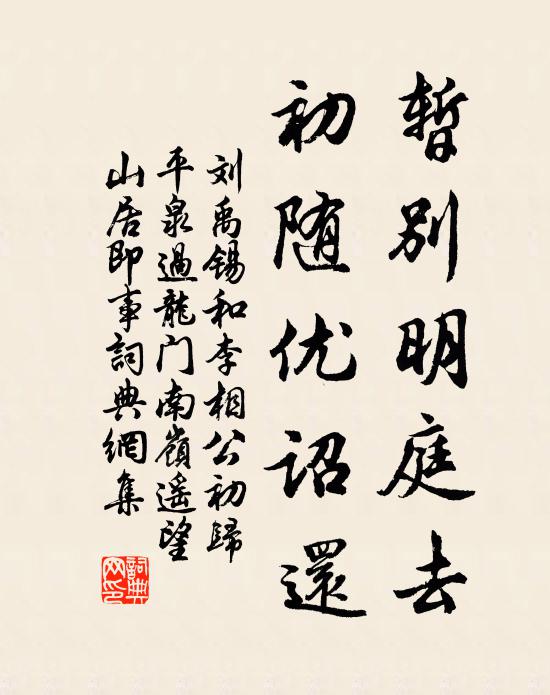 暫别明庭去
初随优诏還
刘禹锡和李相公初歸
平泉過龍门南嶺遥望
山居即事詞典網集
詞典
网印